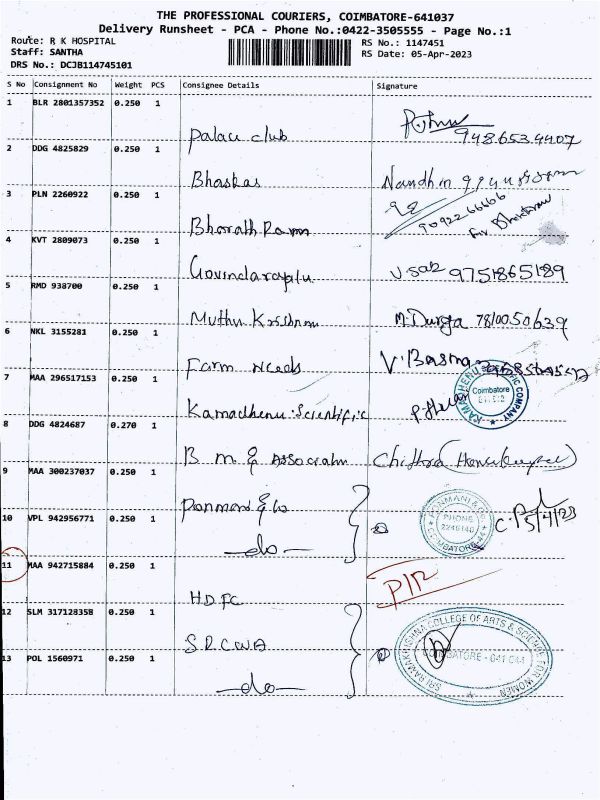 THE PROFESSIONAL COURIERS, COIMBATORE-641037
Delivery Runsheet - PCA - Phone No.:0422-3505555 - Page No.:1
Route: R K HOSPITAL
Staff: SANTHA
DRS No.: DCJB114745101
RS No.: 1147451
RS Date: 05-Apr-2023
S No Consignment No Weight PCS Consignee Details Signature
1 BLR 2801357352 0.250 1
Palace club 948653 4407
2 DDG 4825829 0.250 1
Bhaskas Nandhin
3 PLN 2260922 0.250 1
Bharath Ram 9092266666
4 KVT 2809073 0.250 1
Govindarajalu 9751865189
5 RMD 938700 0.250 1
Muthu Krishnan M.Durga 7810050639
6 NKL 3155281 0.250 1
Farm Needs
7 MAA 296517153 0.250 1
Kamadhenu Scientific
Coimbatore
8 DDG 4824687 0.270 1
B M & Associates Chithra
9 MAA 300237037 0.250 1
Panmani & co
PANMANI & CO.
PHONE
COIMBATORE-44
5/4/23
10 VPL 942956771 0.250 1
—do—
11 MAA 942715884 0.250 1
HDFC
12 SLM 317128358 0.250 1
SRCWA
SRI RAMAKRISHNA COLLEGE OF ARTS & SCIENCE FOR WOMEN
COIMBATORE - 641 044
13 POL 1560971 0.250 1
—do—